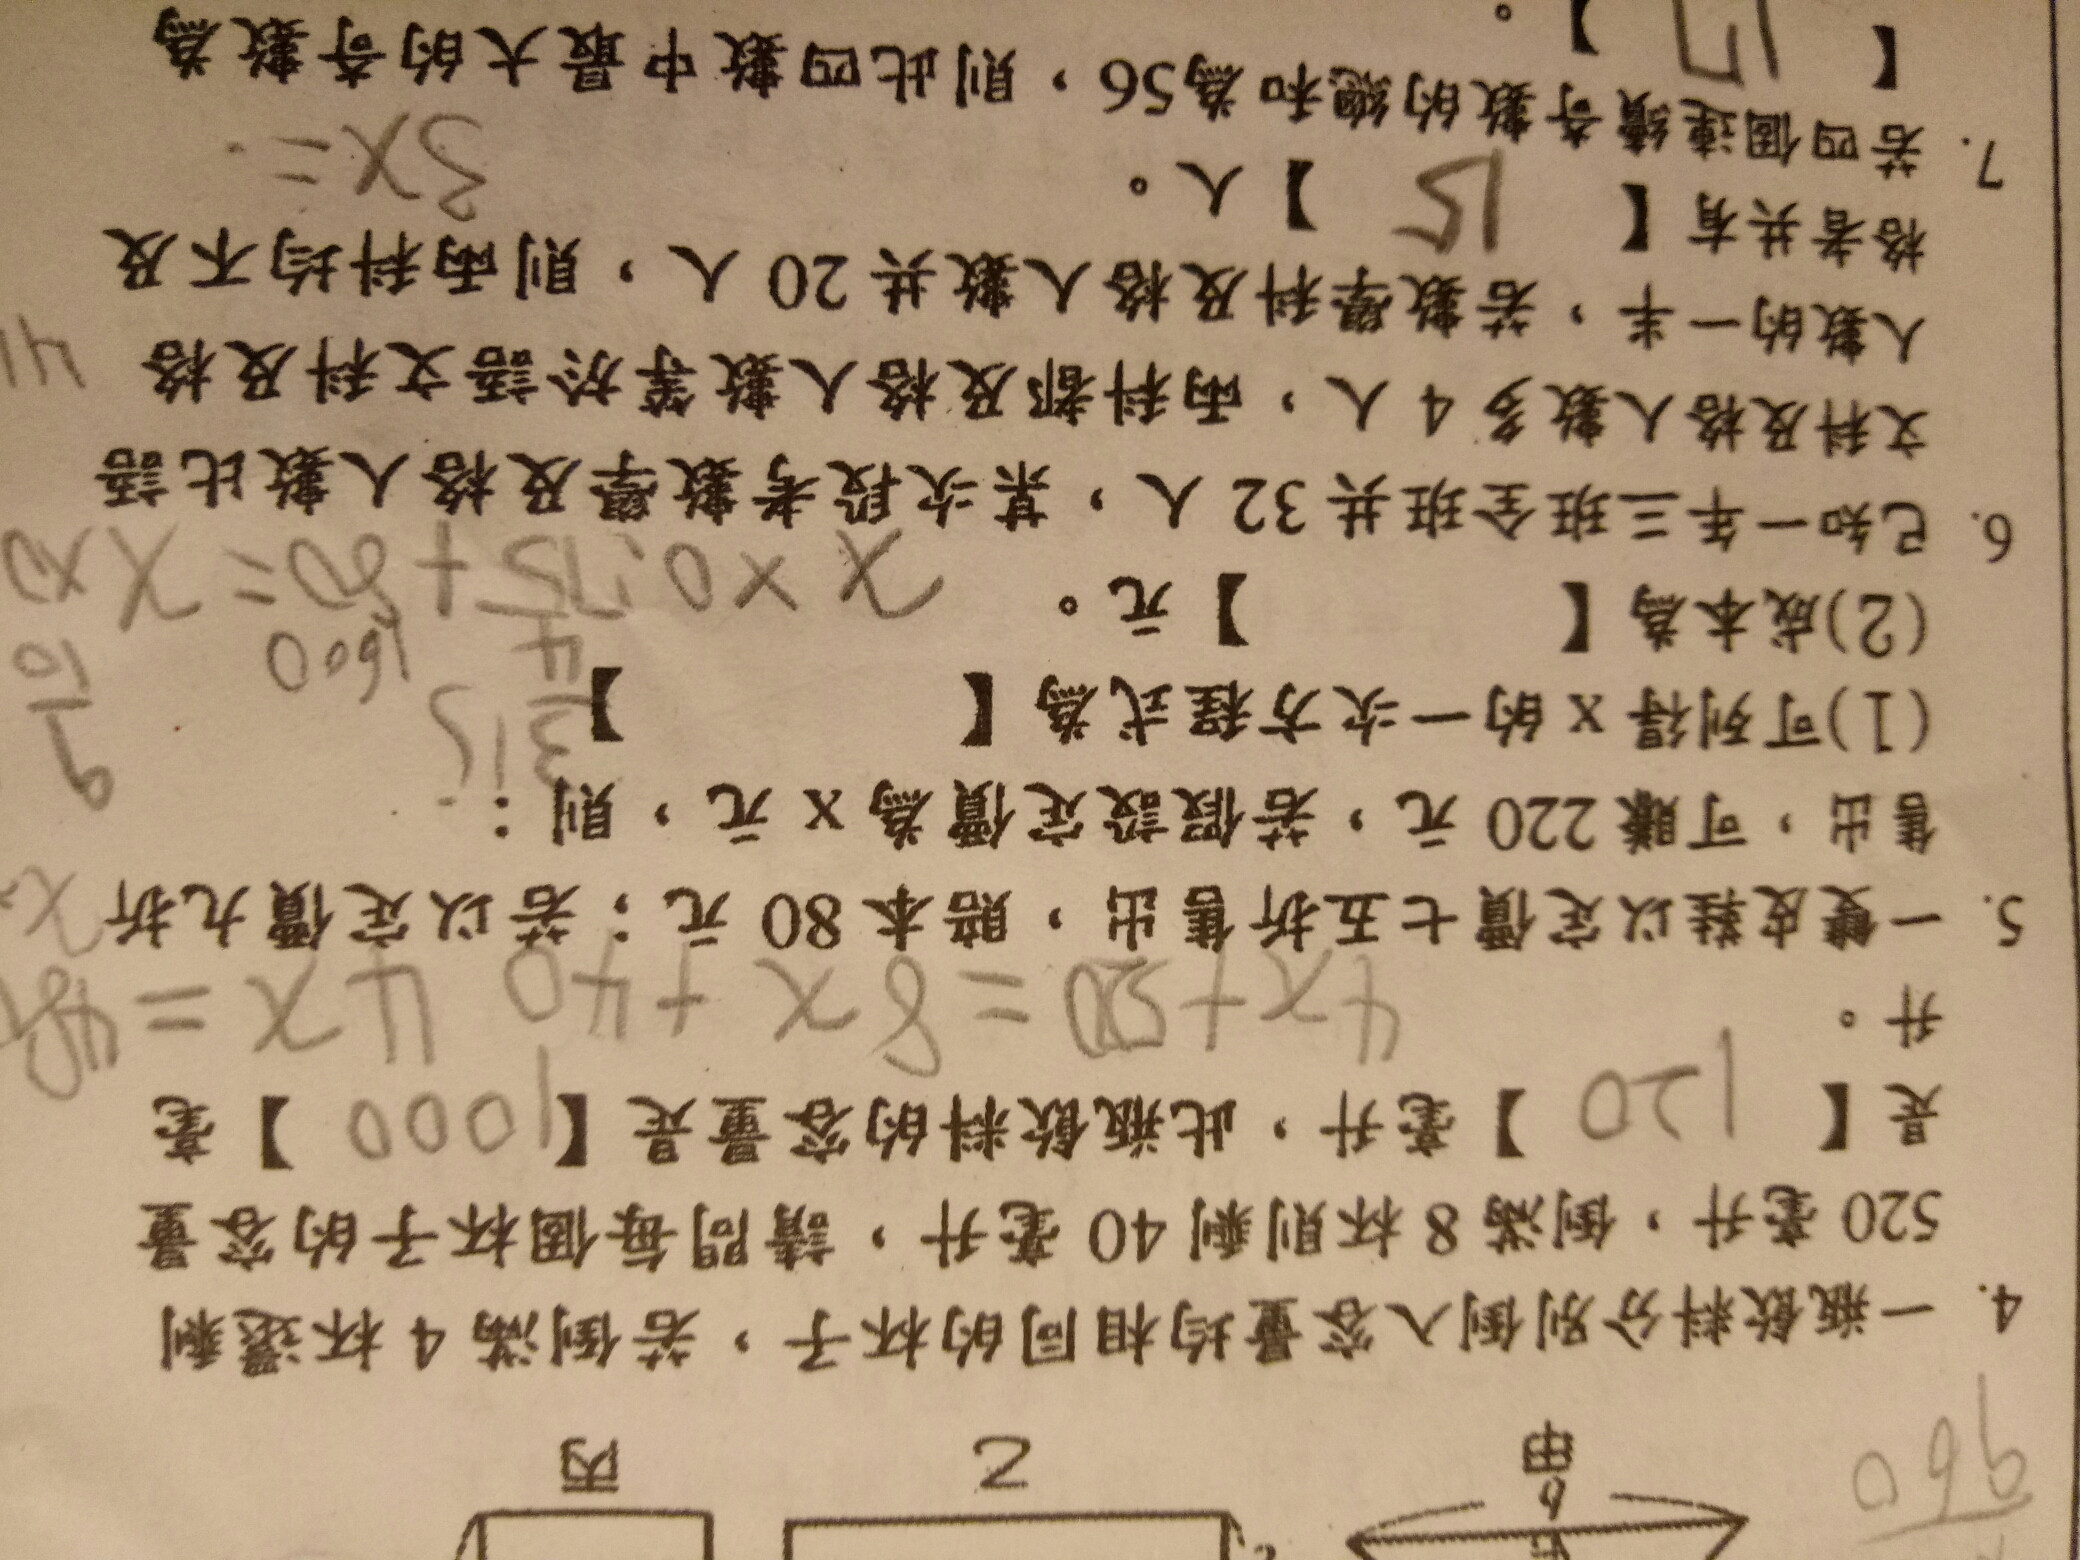 960
甲
乙
丙
4. 一瓶飲料分別倒入容量均相同的杯子，若倒滿 4 杯還剩
520 毫升，倒滿 8 杯則剩 40 毫升，請問每個杯子的容量
是【 120 】毫升，此瓶飲料的容量是【 1000 】毫
升。
4x+520=8x+40 4x=480
5. 一雙皮鞋以定價七五折售出，賠本 80 元；若以定價九折
售出，可賺 220 元，若假設定價為 x 元，則：
(1)可列得 x 的一次方程式為【 】
(2)成本為【 】元。
1600
9
10
x×0.75+80=x×
6. 已知一年三班全班共 32 人，某次段考數學及格人數比語
文科及格人數多 4 人，兩科都及格人數等於語文科及格
人數的一半，若數學科及格人數共 20 人，則兩科均不及
格者共有【 15 】人。
3x=
7. 若四個連續奇數的總和為56，則此四數中最大的奇數為
【 17 】。